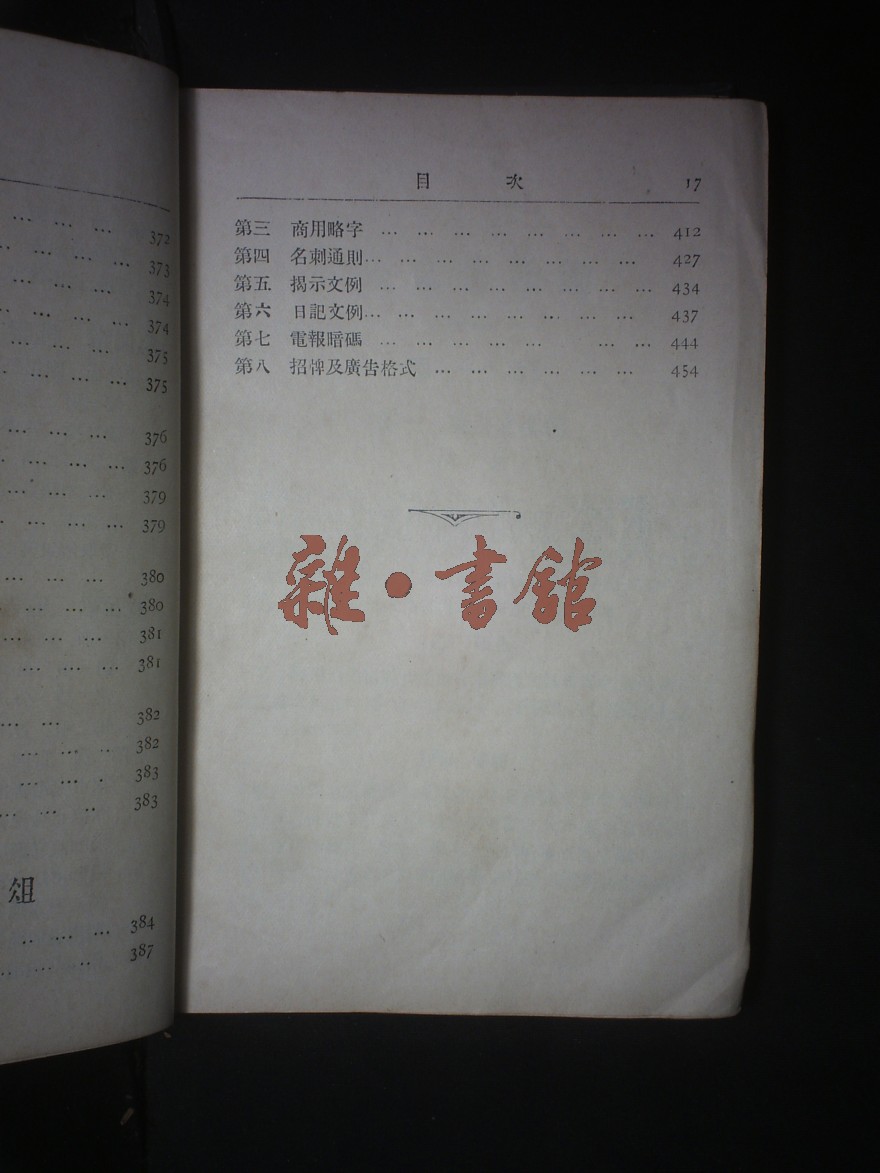 372
373
374
374
375
375
376
376
379
379
380
380
381
381
382
382
383
383
俎
384
387
目 次 17
第三 商用略字 … … … … … … … … 412
第四 名刺通則… … … … … … … … 427
第五 揭示文例 … … … … … … … … 434
第六 日記文例… … … … … … … … 437
第七 電報暗碼 … … … … … … … … 444
第八 招牌及廣告格式 … … … … … … 454
雜·書館